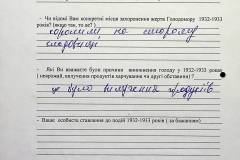 - Чи відомі Вам конкретні місця захоронення жертв Голодомору 1932-1933
років? (якщо так, то де? )
хоронили на старому
кладовищі
- Які Ви вважаєте були причини виникнення голоду у 1932-1933 роках
( неврожай, вилучення продуктів харчування чи другі обставини? )
це було вилучення продуктів
- Ваше особисте ставлення до подій 1932-1933 років ( за бажанням)